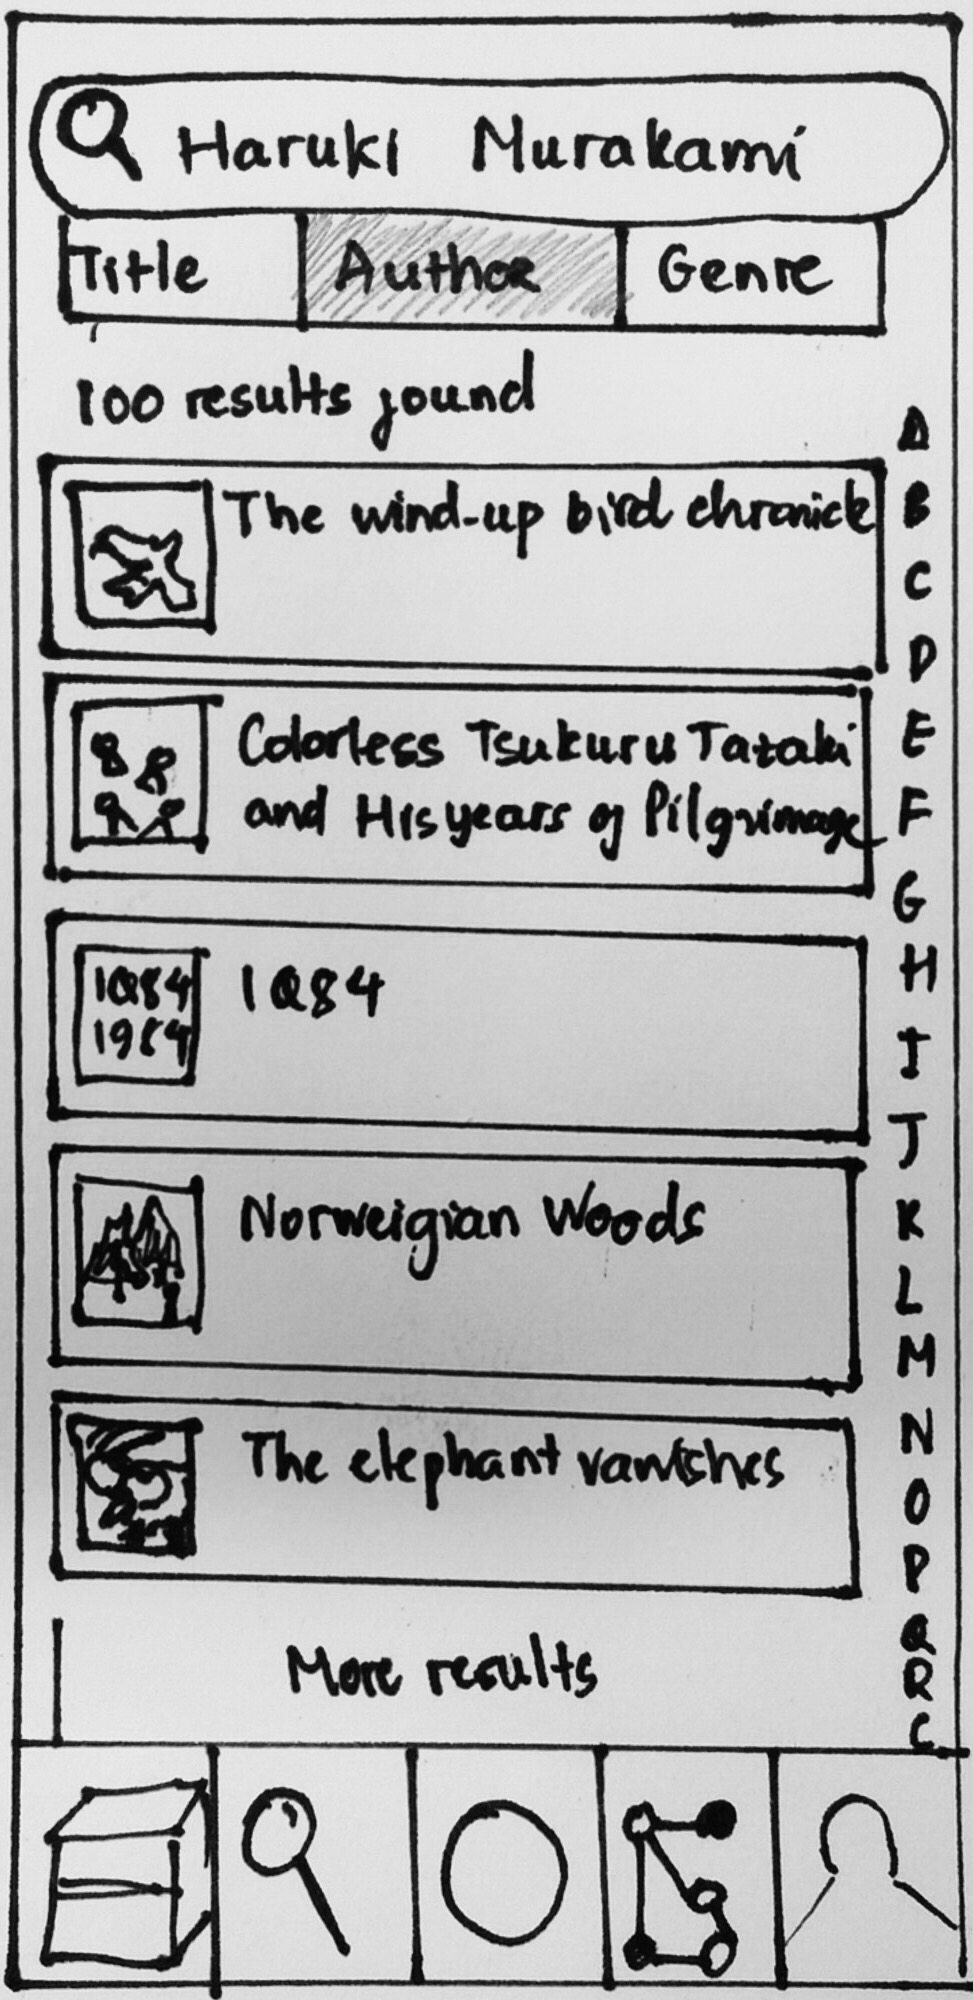 Haruki Murakami
Title Author Genre
100 results found
The wind-up bird chronicle
Colorless Tsukuru Tazaki
and His years of Pilgrimage
1Q84
1984
1Q84
Norweigian Woods
The elephant vanishes
More results
A
B
C
D
E
F
G
H
I
J
K
L
M
N
O
P
Q
R